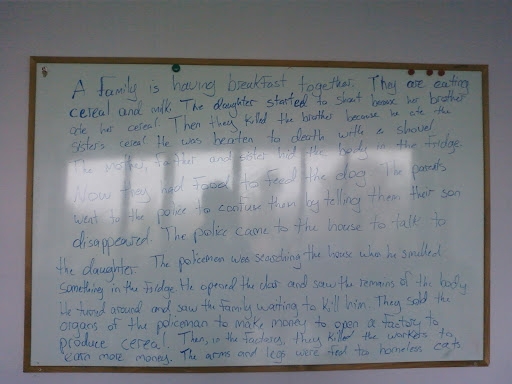 A Family is having breakfast together. They are eating
cereal and milk. The daughter started to shout because her brother
ate her cereal. Then they killed the brother because he ate the
sister's cereal. He was bearten to death with a shovel
The mother, father and sister hid the body in the fridge.
Now they had food to feed the dog. The parents
went to the police to confuse them by telling them their son
disappeared. The police came to the house to talk to
the daughter. The policeman was searching the house when he smelled
something in the fridge. He opened the door and saw the remains of the body
He turned around and saw the family waiting to kill him. They sold the
organs of the policeman to make money to open a factory to
produce cereal. Then, in the factory, they killed the workets to
earn more money. The arms and legs were fed to homeless cats